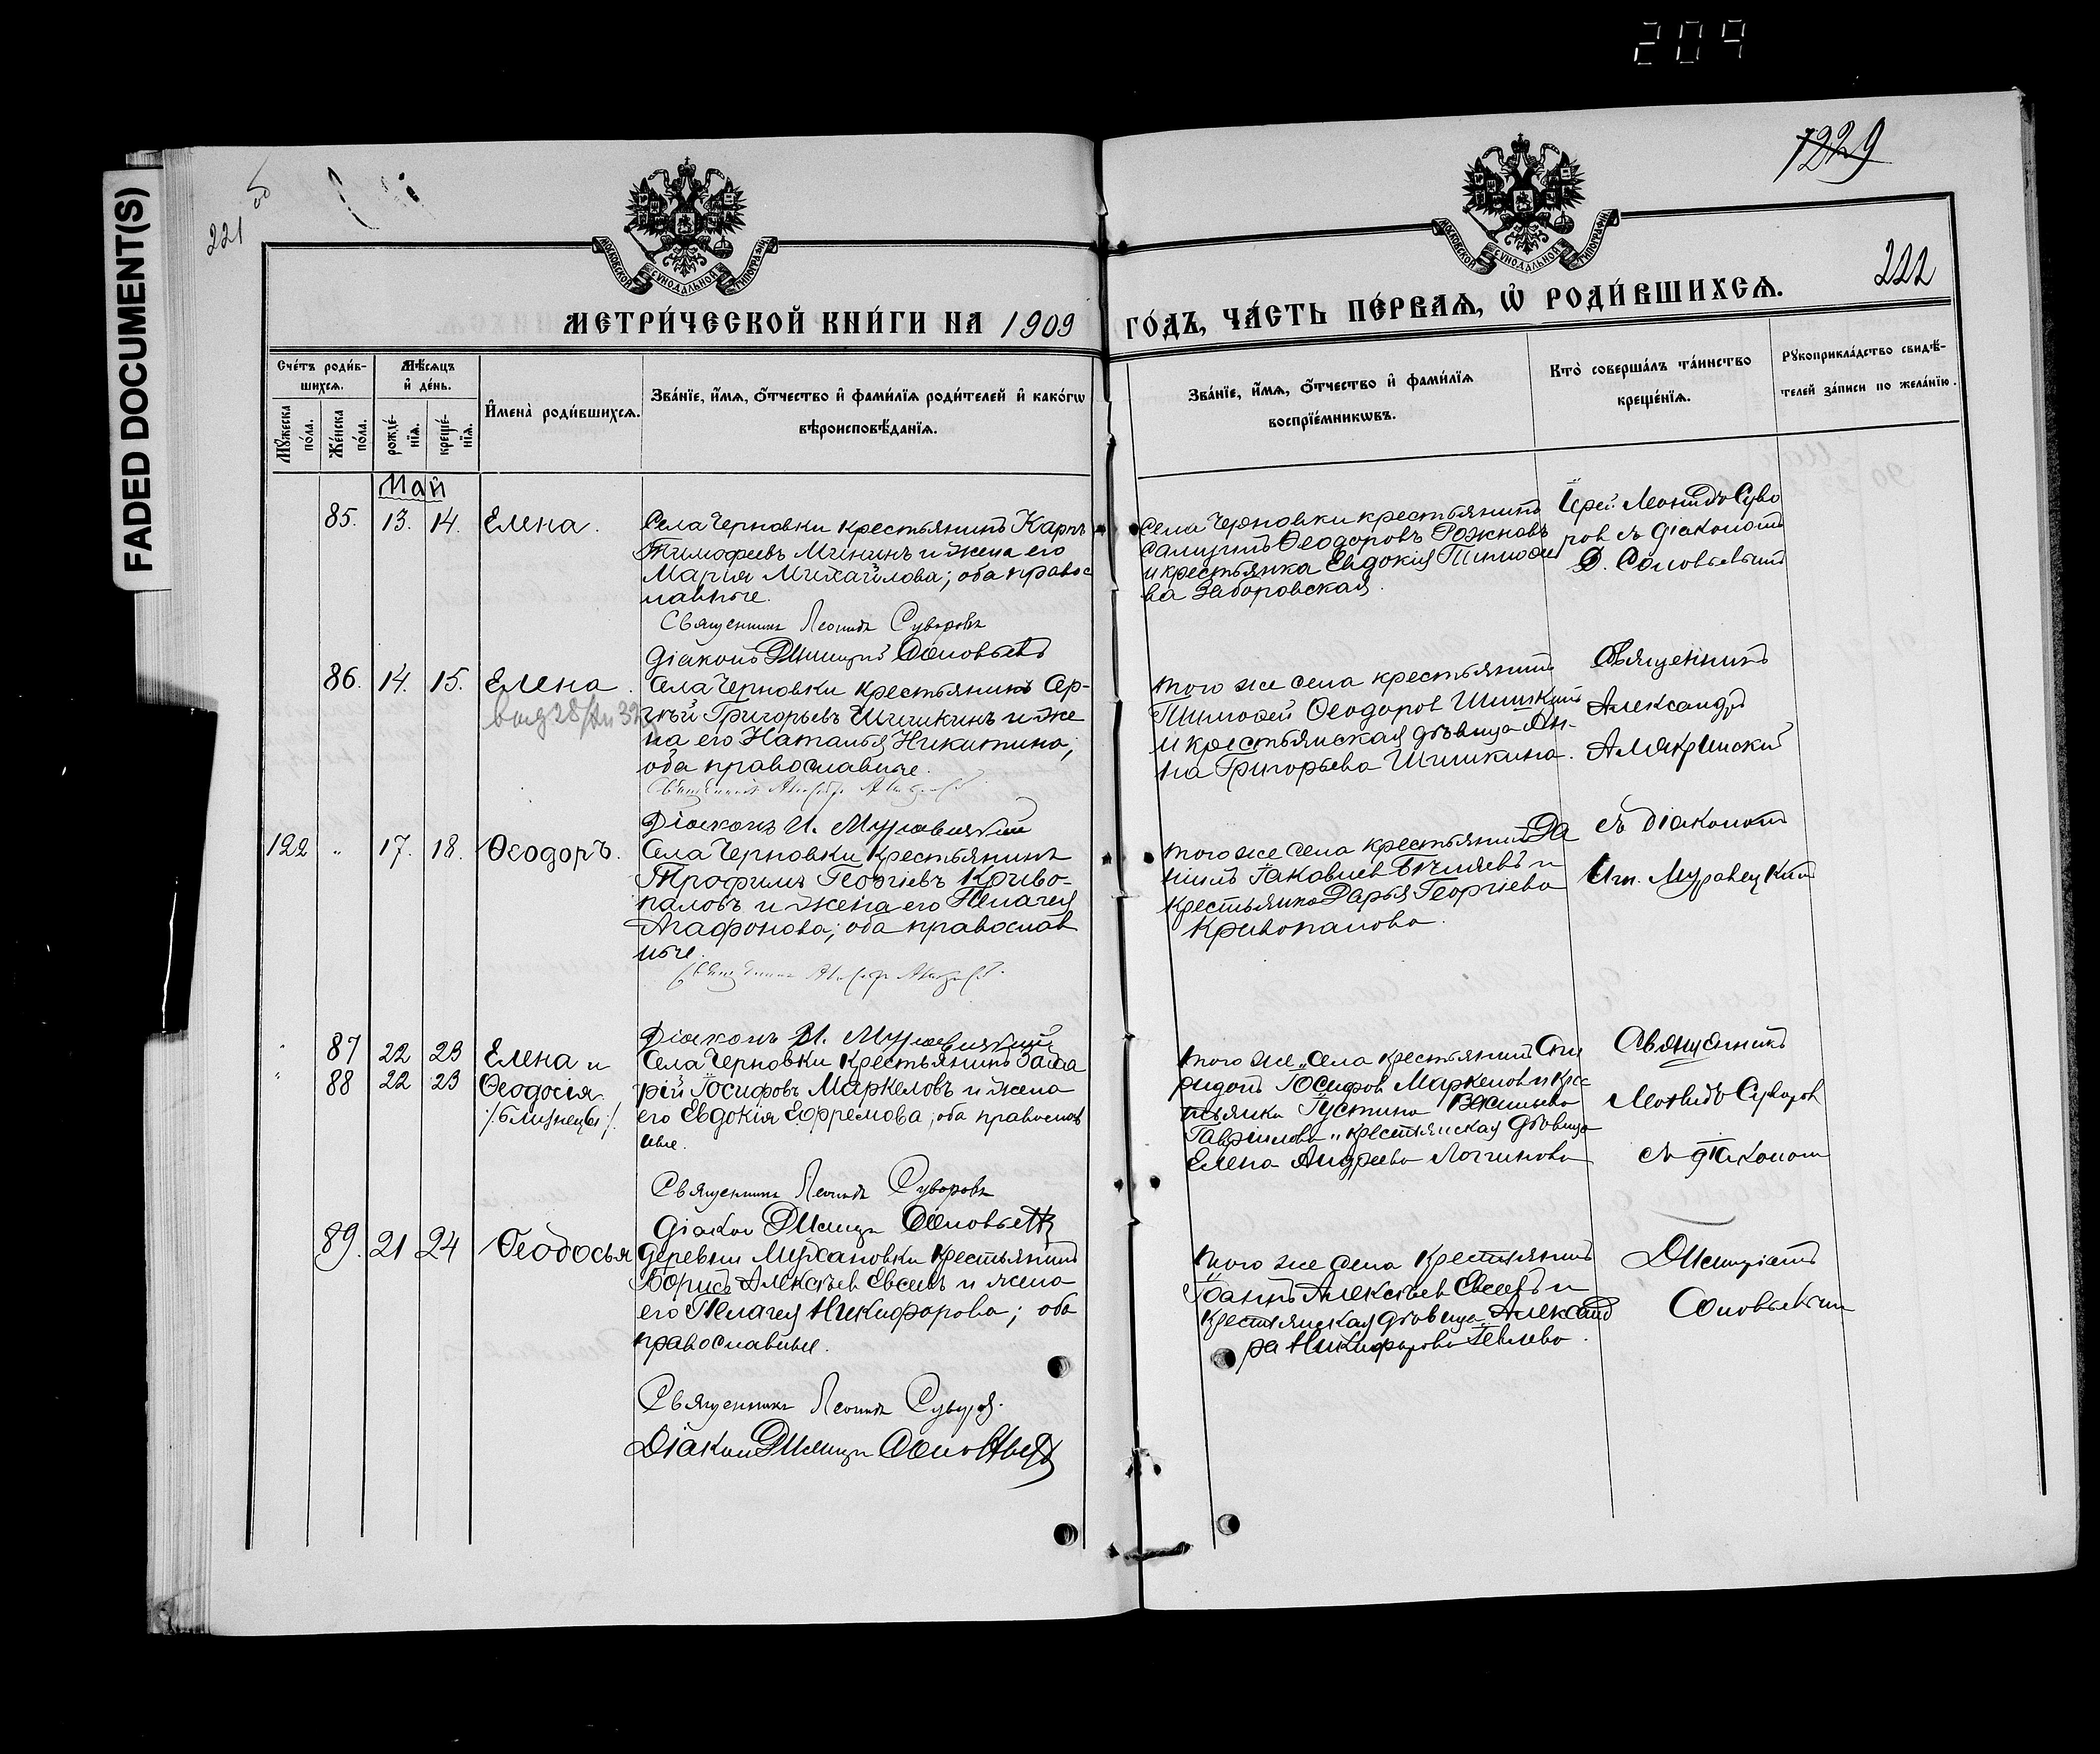 209
FADED DOCUMENT(S)
221
об
1229
222
МОСКОВСКОЙ СУНОДАЛЬНОЙ ТИПОГРАФІИ
МОСКОВСКОЙ СУНОДАЛЬНОЙ ТИПОГРАФІИ
МЕТРИ́ЧЕСКОЙ КНИ́ГИ НА 1909
ГО́ДЪ, ЧА́СТЬ ПЕ́РВАѦ, Ѡ҆ РОДИ́ВШИХСѦ.
Сче́тъ роди́в-
шихсѧ.
Мѣ́сѧцъ
и҆ де́нь.
Мꙋ́жеска
по́ла.
Же́нска
по́ла.
рожде́-
нїѧ.
креще́-
нїѧ.
И҆мена̀ роди́вшихсѧ.
Зва́нїе, и҆́мѧ, ѻ҆́тчество и҆ фами́лїѧ роди́телей и҆ како́гѡ
вѣроисповѣ́данїѧ.
Зва́нїе, и҆́мѧ, ѻ҆́тчество и҆ фами́лїѧ
воспрїе́мникѡвъ.
Кто̀ соверша́лъ та́инство
креще́нїѧ.
Рꙋкоприкла́дство свидѣ́-
телей за́писи по жела́нїю.
Май
85. 13. 14. Елена.
Села Черновки крестьянинъ Карпъ
Тимофеевъ Мининъ и жена его
Марія Михайлова; оба правос
лавные.
Священникъ Леонидъ Суворовъ
Діаконъ Димитрій Соловьевъ
Села Черновки крестьянинъ
Өеодоровъ Рожновъ
и крестьянка Евдокия Тимофее
ва Заборовская.
Іерей Леонидъ Суво
ров съ діакономъ
Д. Соловьевымъ
86. 14. 15. Елена.
Села Черновки крестьянинъ Сер-
гѣй Григорьевъ Шишкинъ и же
на его Наталья Никитина;
оба православные.
Діаконъ И. Муравицкій
того же села крестьянинъ
Тимофей Феодоров Шишкинъ
и крестьянская дѣвица Ан-
на Григорьева Шишкина.
Священникъ
Александръ
122 " 17. 18. Өеодоръ.
Села Черновки крестьянинъ
Трофимъ Георгіевъ Криво-
паловъ и жена его Пелагея
Агафонова; оба православ
ные.
Діаконъ И. Муравицкій
того же села крестьянинъ Да
ніилъ Іаковлев и
крестьянка Дарья Георгіева
Кривопалова.
съ діакономъ
" 87 22 23 Елена и
" 88 22 23 Өеодосія
/:близнецы:/
Села Черновки крестьянинъ Заха
рій Іосифовъ Маркеловъ и жена
его Евдокія Ефремова; оба православ
ные.
Священникъ Леонидъ Суворовъ
Діакон Димитри Соловьевъ
того же села крестьянинъ Спи
ридонъ Іосифов Маркелов и крес
тьянка Іустина Васильева
Гаврилова, крестьянская дѣвица
Елена Андреева Логгинова
Священникъ
Леонидъ Суворов
съ діакономъ
89. 21 24 Өеодосья
деревни Мухановки крестьянинъ
Борисъ Алексѣев Евсеевъ и жена
его Пелагея Никифорова; оба
православные.
Священникъ Леонидъ Суворов.
Діакон Димитри Соловьевъ
того же села крестьянинъ
Іоаннъ Алексѣев Евсеевъ и
крестьянская дѣвица Александ
ра Никифорова
Димитріемъ
Соловьевым